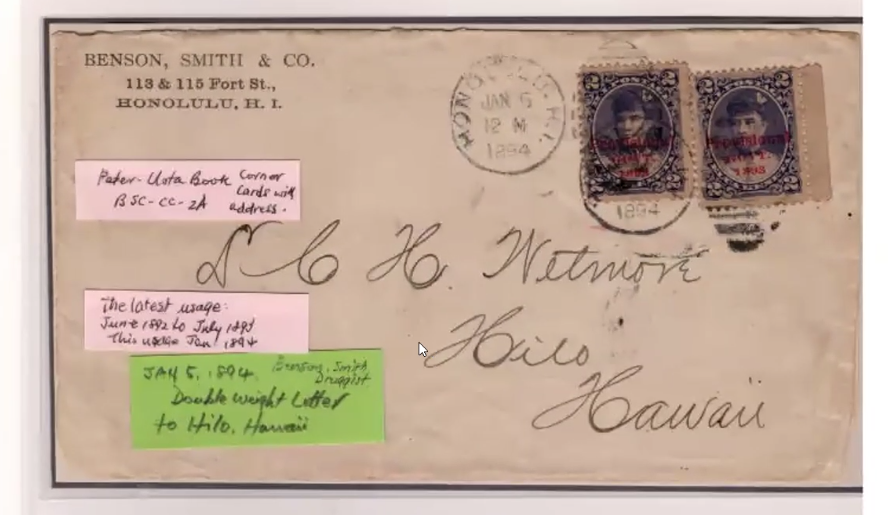 BENSON, SMITH & CO.
113 & 115 Fort St.,
HONOLULU, H. I.
HONOLULU. H.I.
JAN 5
12 M
1894
2 2
Provisional
GOVT.
1893
2 2
Provisional
GOVT.
1893
1894
Book Corner
Cards with
BSC-CC-2A address.
Dr C. H. Wetmore
Hilo
Hawaii
The latest usage:
June 1892 to July 1893
This usage Jan 1894
JAN 5, 1894. Benson, Smith
Druggist
Double Weight Letter
to Hilo, Hawaii